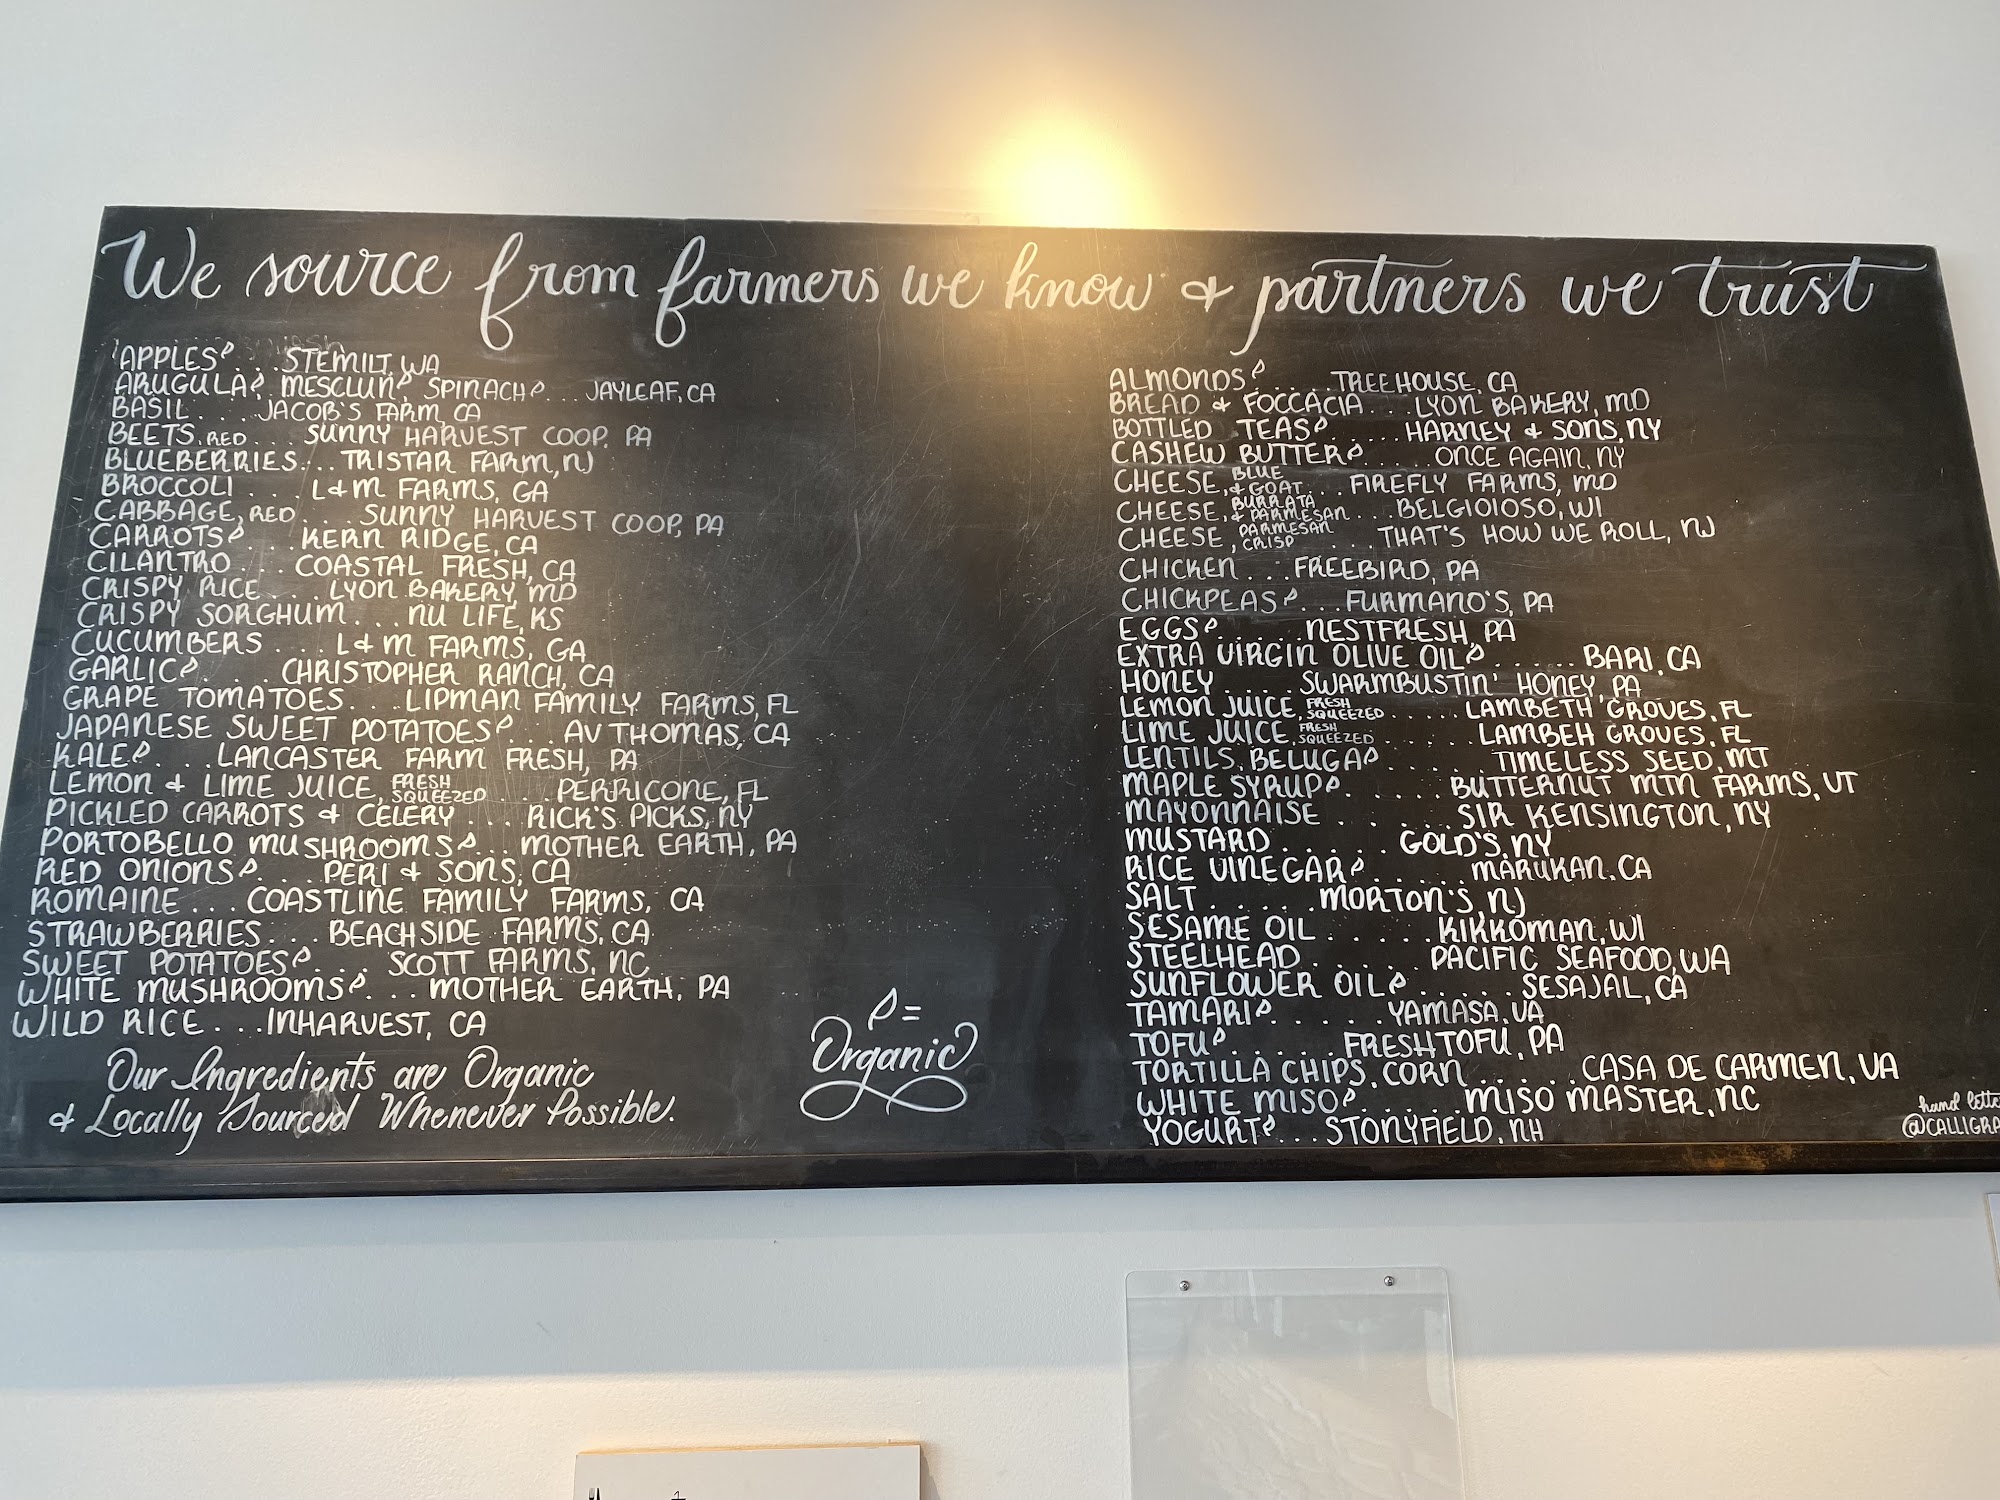 We source from farmers we know & partners we trust
APPLES... STEMILT, WA
ARUGULA, MESCLUN, SPINACH... JAYLEAF, CA
BASIL... JACOB'S FARM, CA
BEETS, RED... SUNNY HARVEST COOP, PA
BLUEBERRIES... TRISTAR FARM, NJ
BROCCOLI.... L&M FARMS, GA
CABBAGE, RED.... SUNNY HARVEST COOP, PA
CARROTS... KERN RIDGE, CA
CILANTRO... COASTAL FRESH, CA
CRISPY RICE... LYON BAKERY, MD
CRISPY SORGHUM... NU LIFE, KS
CUCUMBERS... L&M FARMS, GA
GARLIC.... CHRISTOPHER RANCH, CA
GRAPE TOMATOES... LIPMAN FAMILY FARMS, FL
JAPANESE SWEET POTATOES... AV THOMAS, CA
KALE... LANCASTER FARM FRESH, PA
LEMON & LIME JUICE, FRESH SQUEEZED.... PERRICONE, FL
PICKLED CARROTS & CELERY... RICK'S PICKS, NY
PORTOBELLO MUSHROOMS... MOTHER EARTH, PA
RED ONIONS.... PERI & SONS, CA
ROMAINE... COASTLINE FAMILY FARMS, CA
STRAWBERRIES... BEACHSIDE FARMS, CA
SWEET POTATOES.... SCOTT FARMS, NC
WHITE MUSHROOMS... MOTHER EARTH, PA
WILD RICE... INHARVEST, CA
Our Ingredients are Organic
& Locally Sourced Whenever Possible.
=
Organic
ALMONDS..... TREEHOUSE, CA
BREAD & FOCCACIA... LYON BAKERY, MD
BOTTLED TEAS..... HARNEY & SONS, NY
CASHEW BUTTER..... ONCE AGAIN, NY
CHEESE, BLUE & GOAT... FIREFLY FARMS, MD
CHEESE, BURRATA & PARMESAN... BELGIOIOSO, WI
CHEESE, PARMESAN CRISP..... THAT'S HOW WE ROLL, NJ
CHICKEN... FREEBIRD, PA
CHICKPEAS... FURMANO'S, PA
EGGS..... NESTFRESH, PA
EXTRA VIRGIN OLIVE OIL..... BARI, CA
HONEY.... SWARMBUSTIN' HONEY, PA
LEMON JUICE, FRESH SQUEEZED..... LAMBETH GROVES, FL
LIME JUICE, FRESH SQUEEZED..... LAMBEH GROVES, FL
LENTILS, BELUGA...... TIMELESS SEED, MT
MAPLE SYRUP...... BUTTERNUT MTN FARMS, VT
MAYONNAISE...... SIR KENSINGTON, NY
MUSTARD...... GOLD'S, NY
RICE VINEGAR..... MARUKAN, CA
SALT..... MORTON'S, NJ
SESAME OIL..... KIKKOMAN, WI
STEELHEAD...... PACIFIC SEAFOOD, WA
SUNFLOWER OIL..... SESAJAL, CA
TAMARI..... YAMASA, VA
TOFU...... FRESHTOFU, PA
TORTILLA CHIPS, CORN..... CASA DE CARMEN, VA
WHITE MISO...... MISO MASTER, NC
YOGURT... STONYFIELD, NH
hand lette
@CALLIGRA